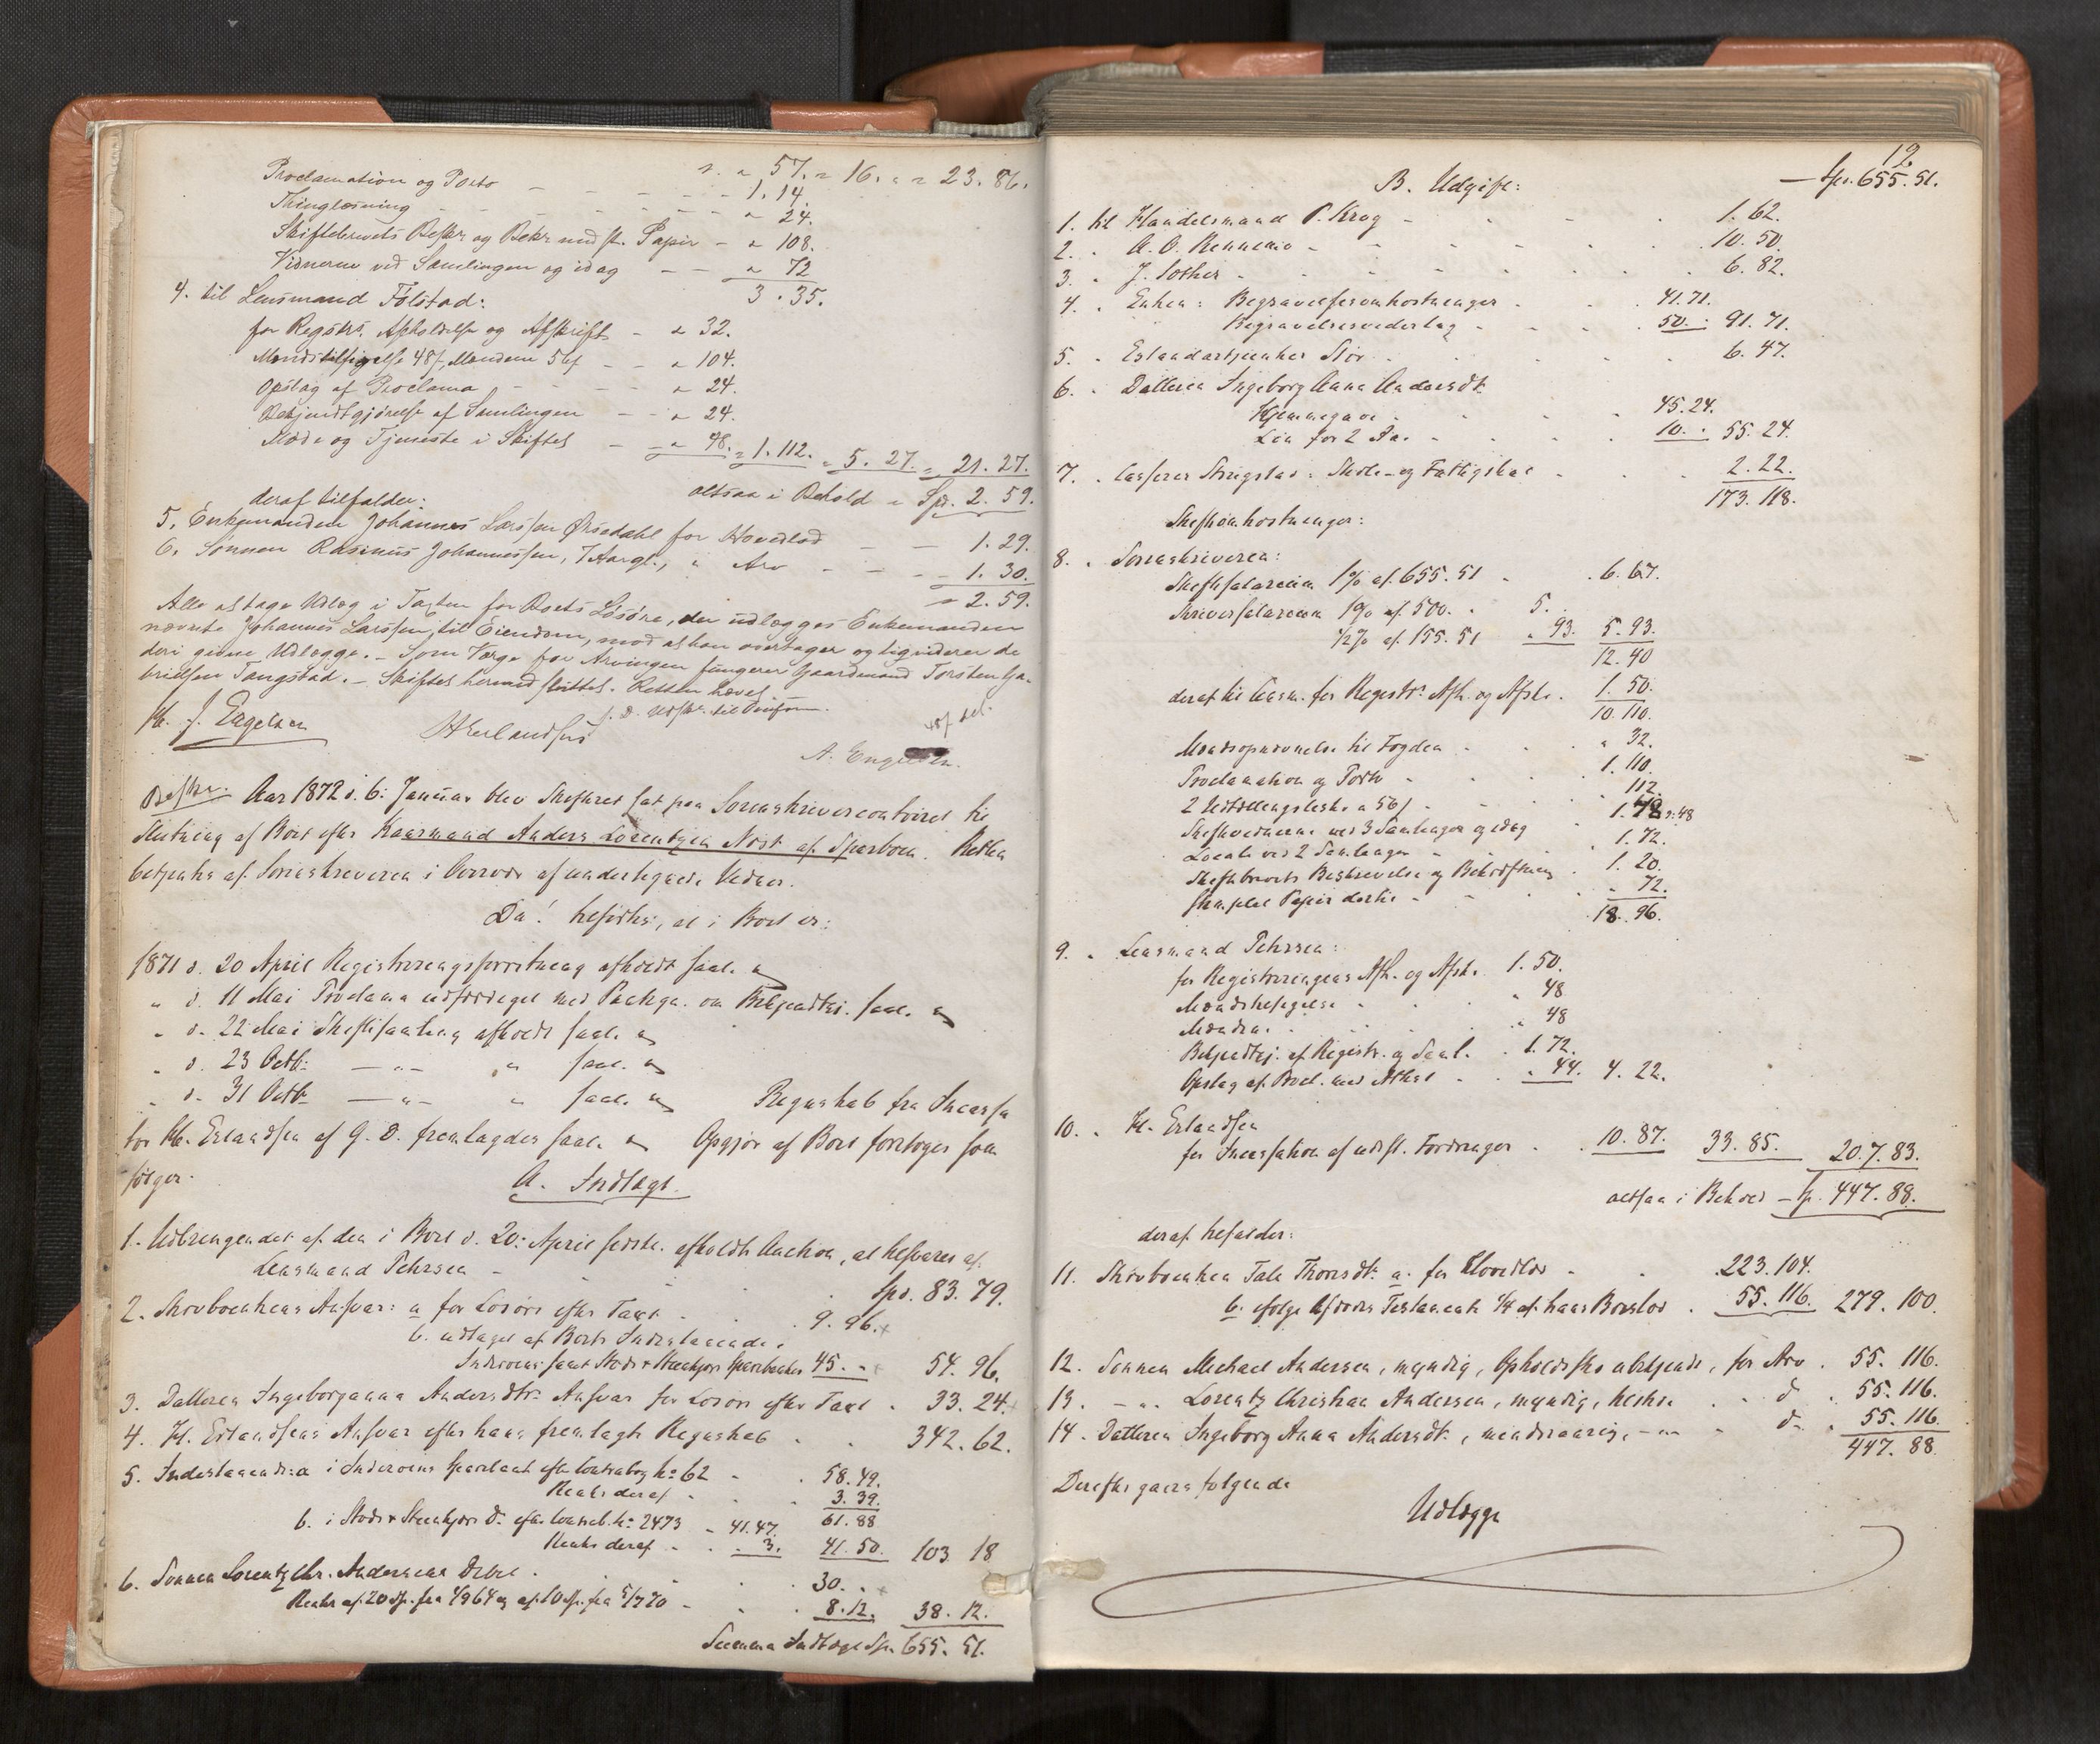 " 57. " 16. " " 23. 86.
Proclamation og Porto - - - - 1. 14.
Thinglæsning - - - - " 24.
Skiftebrevets Beskr. og Bekr. med st. Papir - " 108.
Vidnerne ved Samlingen og idag - - " 72
3. 35.
4. til Lensmand Følstad:
for Registr. Afholdelse og Afskrift - " 32.
Mændstilsigelse 48 ß, Mændene 56 ß - - " 104.
Opslag af Proclama - - - " 24.
Bekjendtgjørelse af Samlingen - - " 24.
Møde og Tjeneste i Skiftet - - " 48. = 1. 112. = 5. 27. = 21. 27.
altsaa i Behold = Spd. 2. 59.
deraf tilfalder:
5. Enkemanden Johannes Larssen for Hovedlod - - 1. 29.
6. Sønnen Rasmus Johannessen, 7 Aar gl., " Arv - - - 1. 30.
= 2. 59.
Alle at tage Udlæg i Taxten for Boets Løsøre, der udlægges Enkemanden
nævnte Johannes Larssen, til Eiendom, mod at han overtager og ligviderer de
deri givne Udlægge. - Som Værge for Arvingen fungerer Gaardmand Torsten Ga-
brielsen Tangstad. - Skiftet hermed sluttet. Retten hævet.
J. Engelsen
H Erlandsen
A. Engelsen.
Aar 1872 d. 6: Januar blev Skifteret sat paa Sorenskrivercontoiret til
Slutning af Boet efter Kaarmand Anders Lorentzen Nøst af Sparboen. Retten
betjentes af Sorenskriveren i Overvær af undertegnede Vidner.
Da! tilførtes, at i Boet er:
1871 d. 20 April Registreringsforretning afholdt saal.
" d. 11 Mai Proclama udfærdiget med Paategn. om Bekjendtgj. saal.
" d. 22 Mai Skiftesamling afholdt saal.
" d. 23 Octb: - " - " saal.
" d. 31 Octb: - " - " saal. Regnskab fra Incassa
tor H. Erlandsen af G. D. fremlagdes saal. Opgjør af Boet foretoges som
følger.
A. Indtægt.
1. Udbringendet af den i Boet d. 20: April sidstl. afholdte Auction, at tilsvares af
Lensmand Pehrsen - . . . Spd. 83. 79.
2. Skovboenkens Ansvar: a for Løsøre efter Taxt . . 9. 96.
b. udtaget af Boets Indestaaende i
Inderøens samt Stods & Stenkjærs Sparebanker 45. " 54. 96.
3. Datteren Ingeborganna Andersdtr. Ansvar for Løsøre efter Taxt . 33. 24.
4. H. Erlandsens Ansvar efter hans fremlagte Regnskab . . 342. 62.
5. Indestaaende: a i Inderøens Sparebank efter Contrabog No 62 - . 58. 49.
Renter deraf . . . 3. 39.
61. 88
b. i Stods & Stenkjærs do. efter Contrab. No 2473 - 41. 47.
Renter deraf . . . 3. 41. 50. 103. 18
6. Sønnen Lorentz Chr. Andersens Debet . . . 30. .
8. 12. 38. 12.
Summa Indtægt Spd. 655. 51.
12
B. Udgift: - Spd. 655. 51.
1. til Handelsmand P. Krog - . . . 1. 62.
2. " A. O. - . . . 10. 50.
3. " . . . 6. 82.
4. " Enken: Begravelsesomkostninger . . 41. 71.
Begravelsesvederlag . . . 50. . 91. 71.
5. " . . . 6. 47.
6. " Datteren Ingeborg Anna Andersdt.
Hjemmegave . . . 45. 24.
Løn for 2 Aar . . . 10. . 55. 24.
7. " Casserer : Skole- og Fattigskat . . . 2. 22.
173. 118.
Skifteomkostninger:
8. " Sorenskriveren:
Skiftesalarium 1% af 655. 51 . . 6. 67.
Skriversalarium 1% af 500. . 5. .
1/2% af 155. 51 " 93. 5. 93.
12. 40
deraf til Lensm. for Registr. Afh. og Afskr. . 1. 50.
10. 110.
Mændsopnævnelse til Fogden . . . " 32.
Proclamation og Porto . . . 1. 110.
2 a 56 ß . . . 112.
Skiftevidnerne ved 3 Samlinger og idag . 1. 48
Locale ved 2 Samlinger . . 1. 72.
Skiftebrevets Beskrivelse og Bekræftning . 1. 20.
stemplet Papir dertil . . . " 72.
18. 96.
9. " Lensmand Pehrsen:
for Registreringens Afh. og Afskr. 1. 50.
Mændstilsigelse . . " 48
Mændene . . . " 48
Bekjendtgj. af Registr. og Saml. . 1. 72.
Opslag af Procl. med Attest . . " 44. 4. 22.
10. " H. Erlandsen
for Incassation af udest. Fordringer . . 10. 87. 33. 85. 207. 83.
altsaa i Behold - Sp. 447. 88.
deraf tilfalder:
11. Skovboenken Tale Thoresdt. a. for Hovedlod . . 223. 104.
b. ifølge Afdødes Testamente 1/4 af hans Boeslod . 55. 116. 279. 100.
12. Sønnen Michael Andersen, myndig, Opholdssted ubekjendt, for Arv . 55. 116.
13. - " - Lorentz Christian Andersen, myndig, . . do . 55. 116.
14. Datteren Ingeborg Anna Andersdt., mindreaarig, - " - " do " 55. 116.
447. 88.
Derefter gjøres følgende
Udlægge